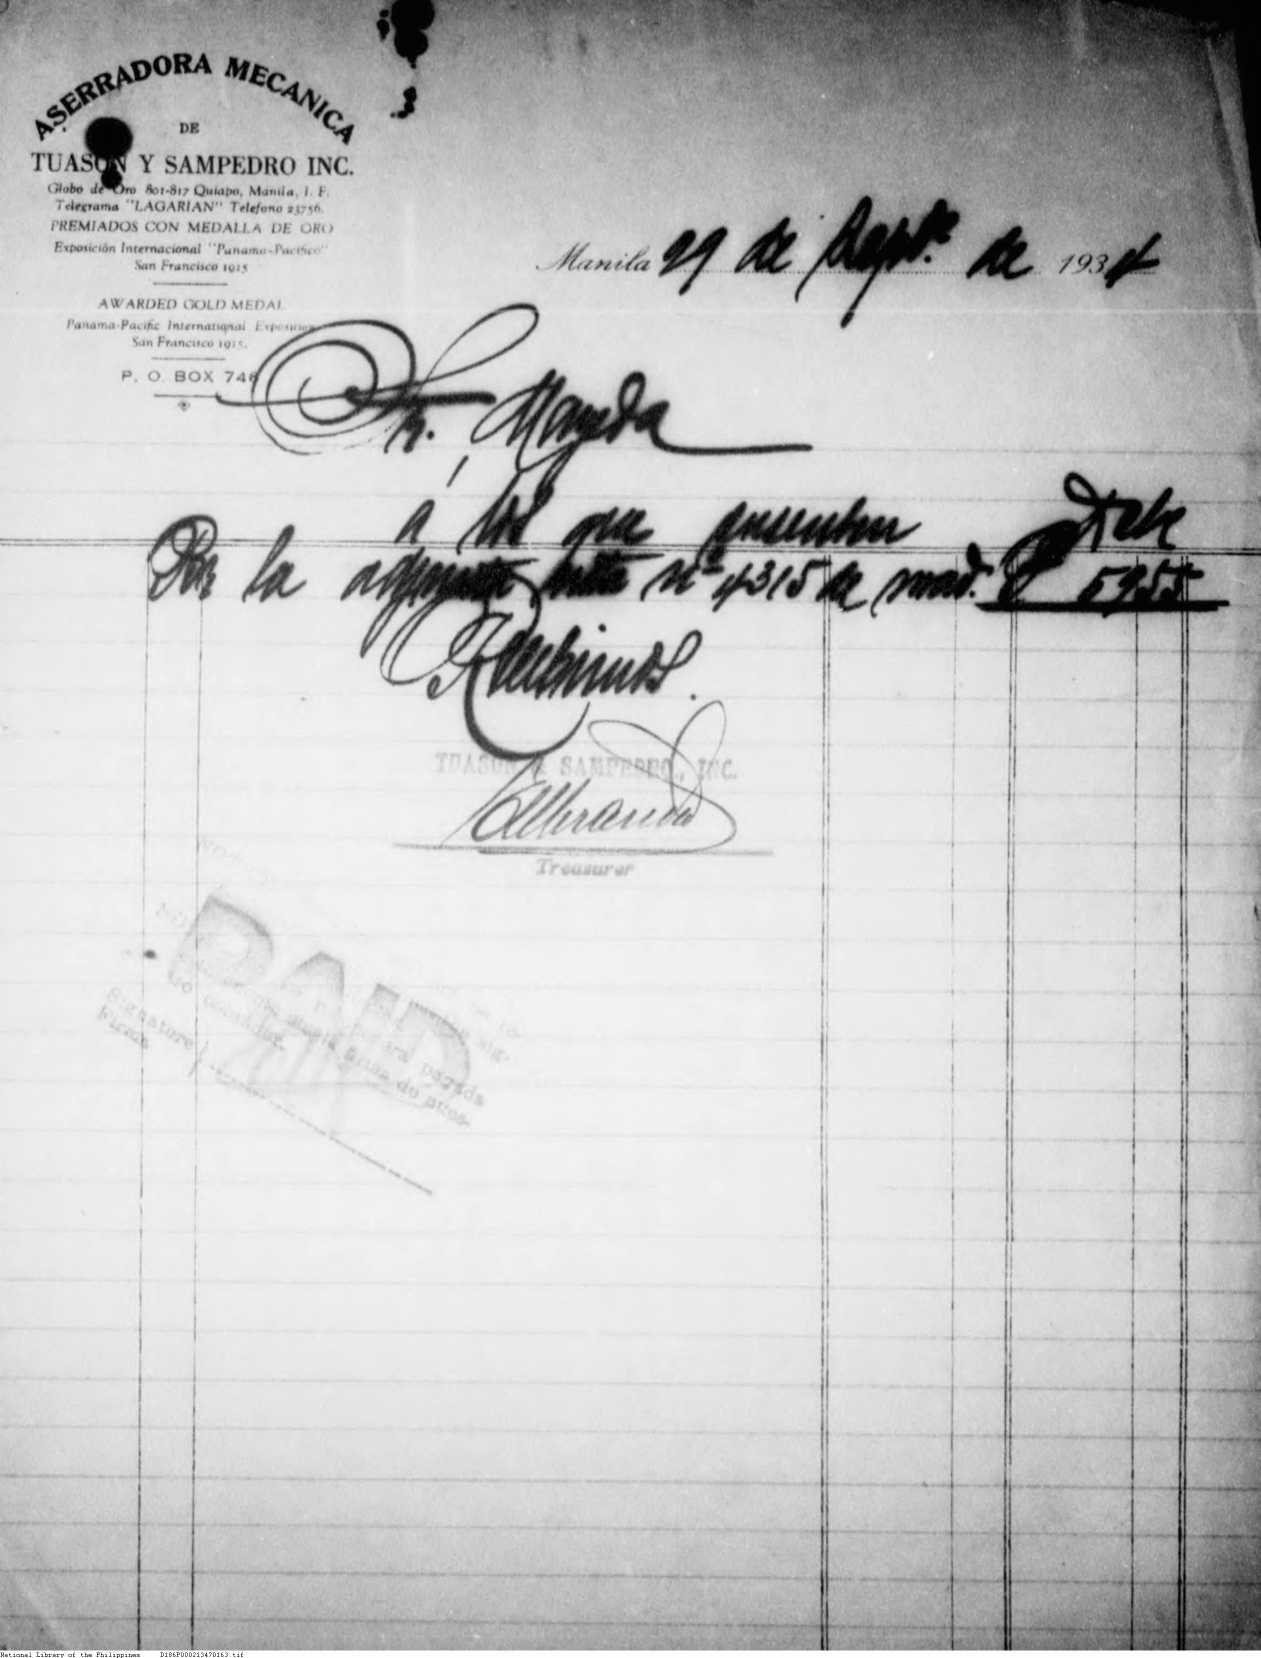 ASERRADORA MECANICA
DE
TUASON Y SAMPEDRO INC.
Globo de Oro 801-817 Quiapo, Manila, I. F.
Telegrama "LAGARIAN" Telefono 23756.
PREMIADOS CON MEDALLA DE ORO
Exposición Internacional "Panama-Pacifico"
San Francisco 1915
AWARDED GOLD MEDAL
Panama-Pacific International Exposition
San Francisco 1915.
P. O. BOX 746
Manila 29 de Sept. de 1934
Sr. Mayeda
á los que suscriben Debe
Por la adjunta nta nº 4315 de mad. ₱ 5955
Recibimos.
TUASON & SAMPEDRO, INC.
Treasurer
PAID
pagada
Signature
Firma
National Library of the Philippines D186P000213470163.tif